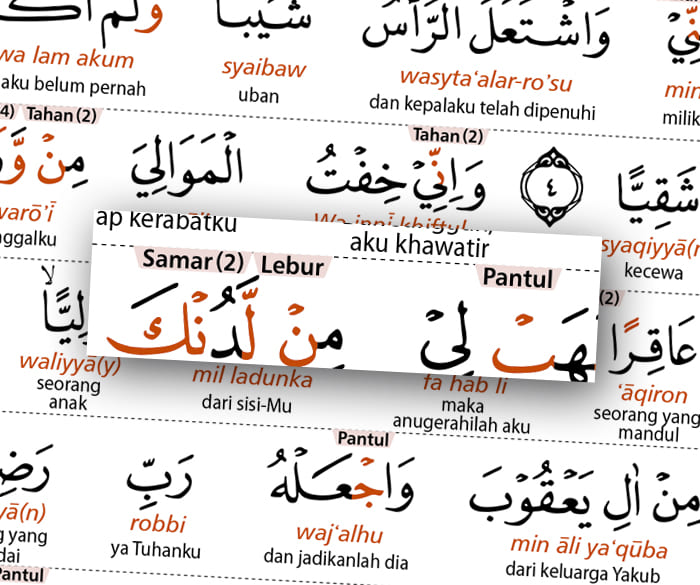 وَاشْتَعَلَ الرَّأْسُ شَيْبًا وَّلَمْ اَكُ
wasyta‘alar-ro’su syaibaw wa lam akum
dan kepalaku telah dipenuhi uban aku belum pernah
Tahan (2) Tahan (2)
شَقِيًّا ٤ وَاِنِّيْ خِفْتُ الْمَوَالِيَ مِنْ وَّ
aku khawatir
kecewa
Pantul Lebur Samar (2)
عَاقِرًا هَبْ لِيْ مِنْ لَّدُنْكَ لِيًّا
‘āqiron fa hab lī mil ladunka waliyyā(y)
seorang yang mandul maka anugerahilah aku dari sisi-Mu seorang anak
Pantul
مِنْ اٰلِ يَعْقُوْبَ وَاجْعَلْهُ رَبِّ رَضِ
min āli ya‘qūba waj‘alhu robbi
dari keluarga Yakub dan jadikanlah dia ya Tuhanku
Pantul